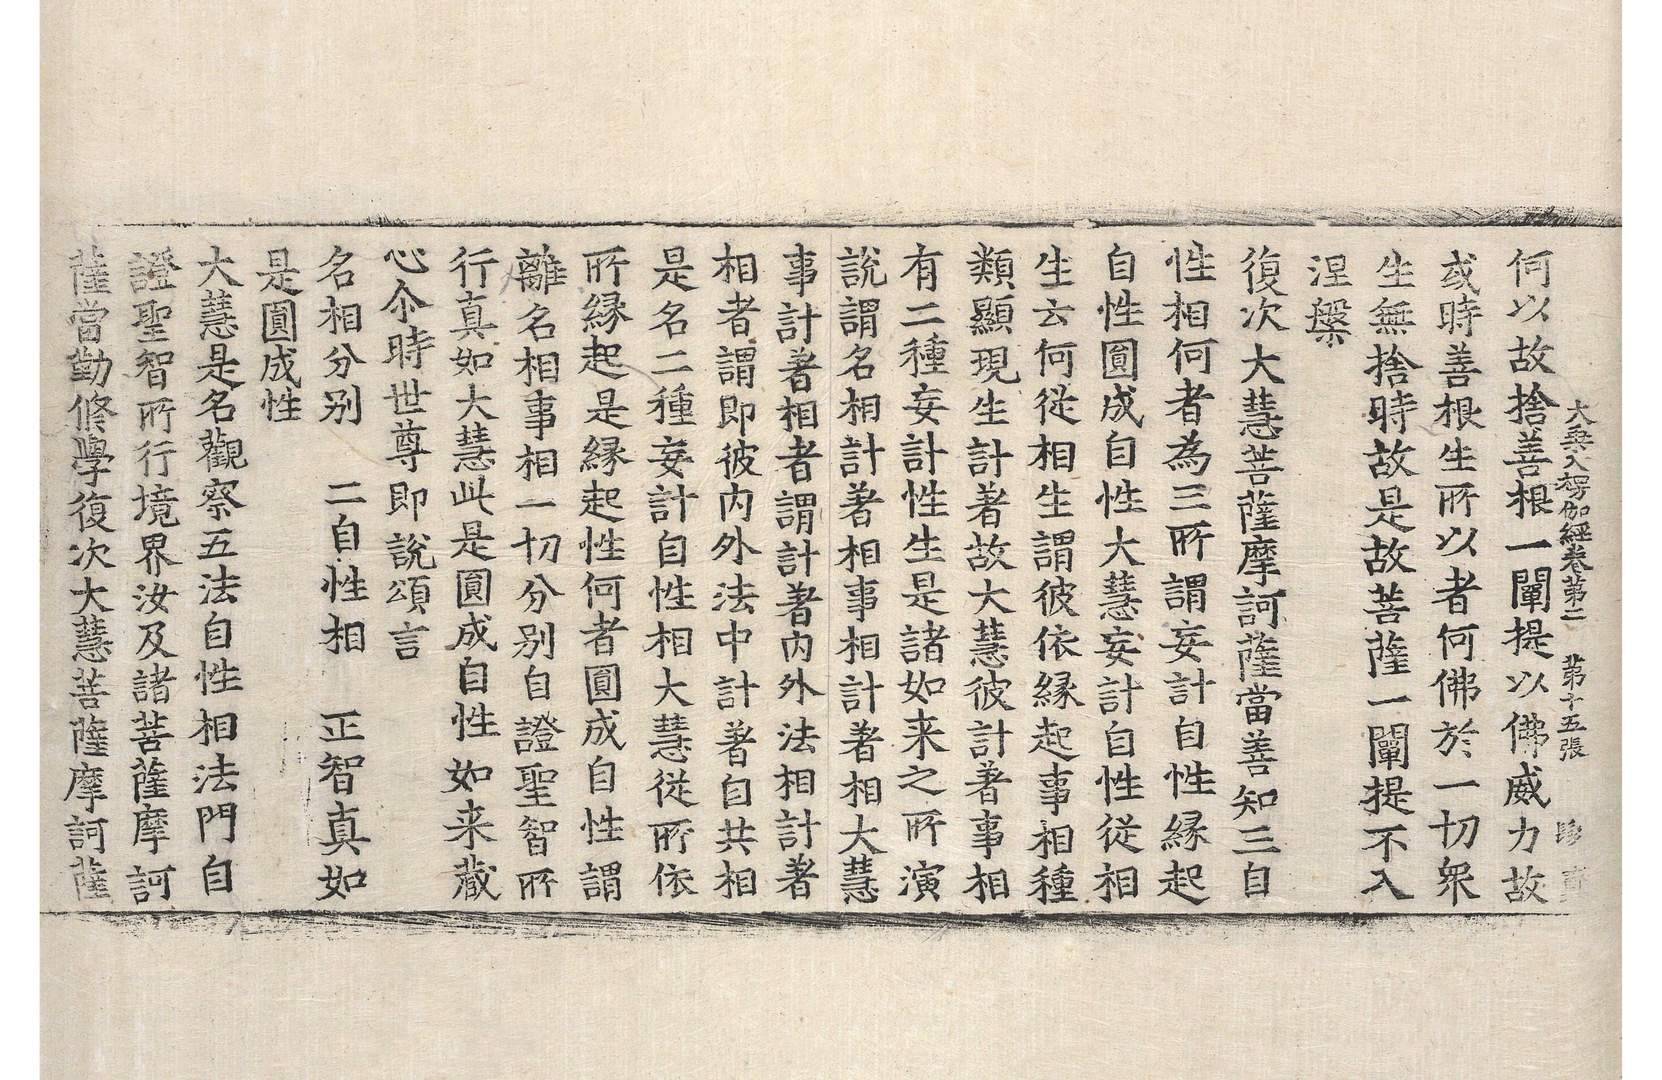 大乗入楞伽經卷第二　第十五張
何以故捨善根一闡提以佛威力故
或時善根生所以者何佛於一切衆
生無捨時故是故菩薩一闡提不入
涅槃
復次大慧菩薩摩訶薩當善知三自
性相何者為三所謂妄計自性縁起
自性圓成自性大慧妄計自性從相
生云何從相生謂彼依縁起事相種
類顯現生計著故大慧彼計著事相
有二種妄計性生是諸如来之所演
說謂名相計著相事相計著相大慧
事計著相者謂計著內外法相計著
相者謂即彼內外法中計著自共相
是名二種妄計自性相大慧從所依
所縁起是縁起性何者圓成自性謂
離名相事相一切分別自證聖智所
行真如大慧此是圓成自性如来藏
心尒時世尊即說頌言
名相分別　二自性相　正智真如
是圓成性
大慧是名觀察五法自性相法門自
證聖智所行境界汝及諸菩薩摩訶
薩當勤修學復次大慧菩薩摩訶薩